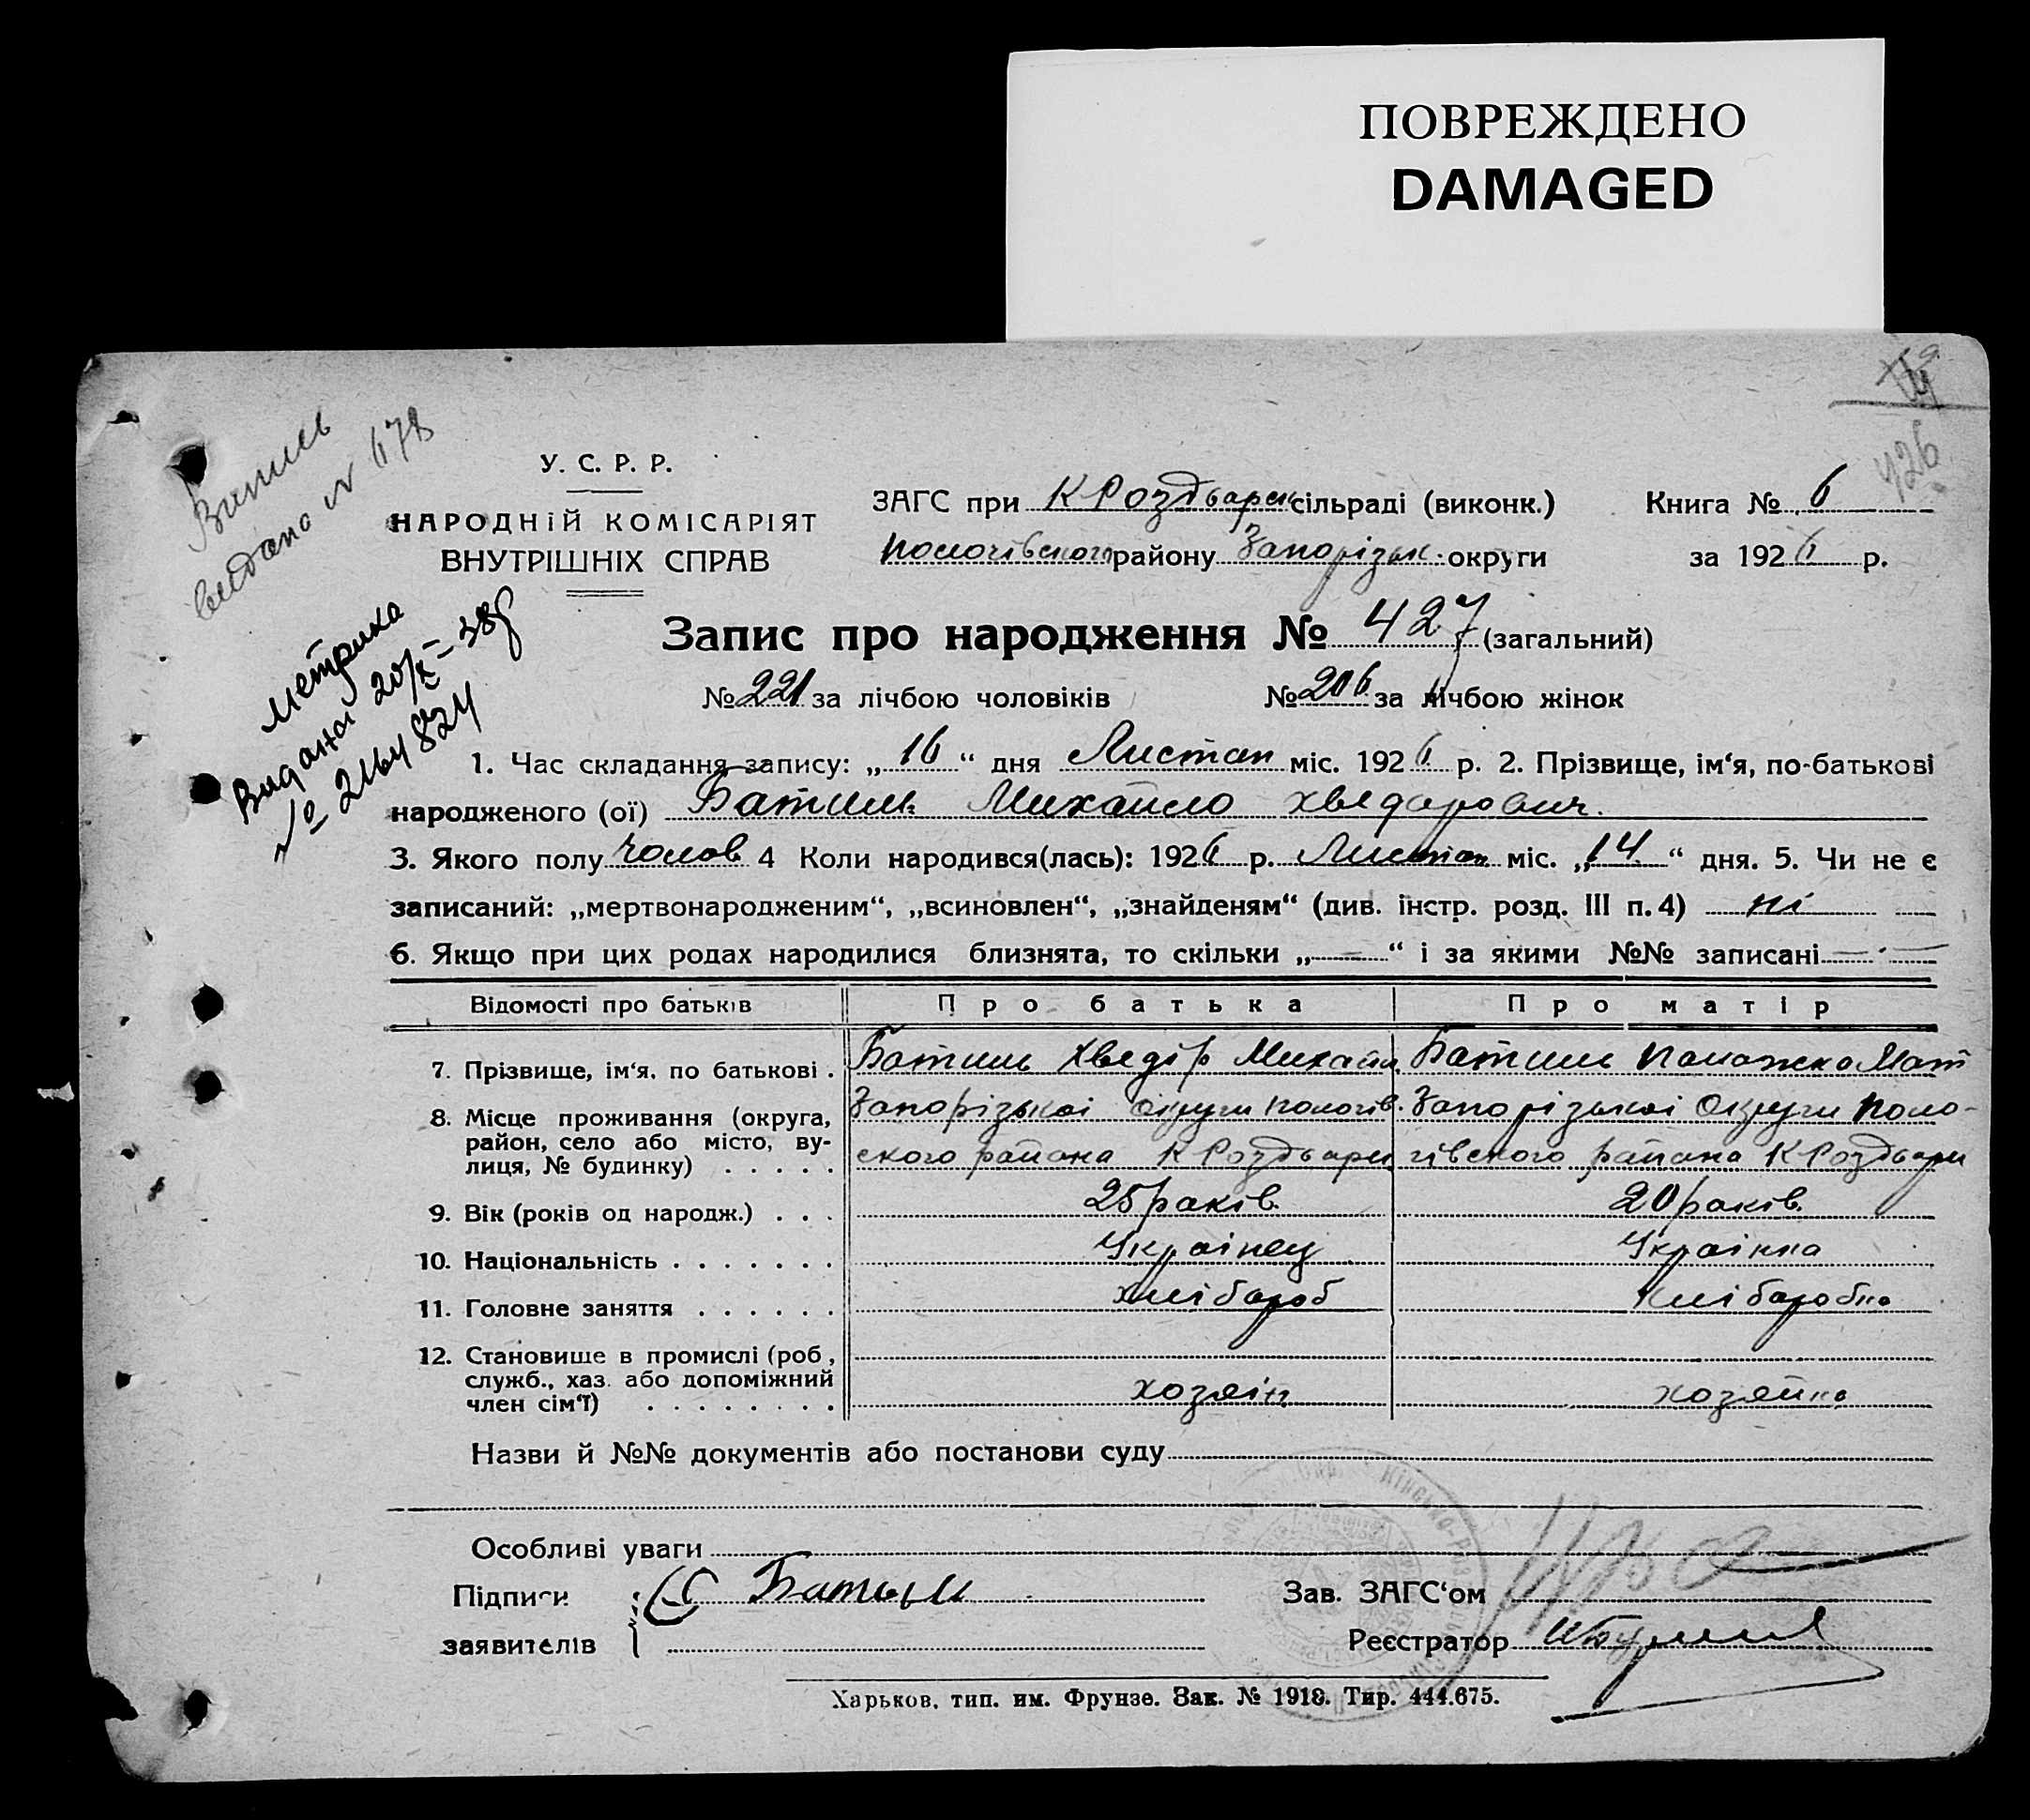 ПОВРЕЖДЕНО
DAMAGED
426
Витись
видано N 1178
Метрика
Видана 20/X-38р
№ 2164824
У. С. Р. Р.
НАРОДНІЙ КОМІСАРІЯТ
ВНУТРІШНІХ СПРАВ
ЗАГС при К Роздварск сільраді (виконк.) Книга № 6
Пологівского району Запорізьк. округи за 1926 р.
Запис про народження № 427 (загальний)
№ 221 за лічбою чоловіків № 206 за лічбою жінок
1. Час складання запису: „16“ дня Листап міс. 1926 р. 2. Прізвище, ім‘я, по-батькові
народженого (ої) Батиль Михайло Хведарович.
3. Якого полу чолов 4 Коли народився(лась): 1926 р. Листап міс. „14“ дня. 5. Чи не є
записаний: „мертвонародженим“, „всиновлен“, „знайденям“ (див. інстр. розд. III п. 4) ні
6. Якщо при цих родах народилися близнята, то скільки „—“ і за якими №№ записані —
Відомості про батьків Про батька Про матір
7. Прізвище, ім‘я, по батькові . Батиль Хведір Михайл. Батиль Мат
8. Місце проживання (округа, Запорізькоі округи пологів. Запорізькоі Округи Поло-
район, село або місто, ву- ского района К Роздвари гівского района К Роздвари
лиця, № будинку) . . . . .
9. Вік (років од народж.) . . . 25 раків. 20 раків.
10. Національність . . . . . . . Украінец Украінка
11. Головне заняття . . . . . . хлібароб хлібаробка
12. Становище в промислі (роб.,
служб., хаз. або допоміжний
член сім‘ї) . . . . . . . . хозяін хозяйка
Назви й №№ документів або постанови суду
Особливі уваги
Підписи Батыль Зав. ЗАГС‘ом
заявителів Реєстратор
Харьков, тип. им. Фрунзе. Зак. № 1918. Тир. 444.675.